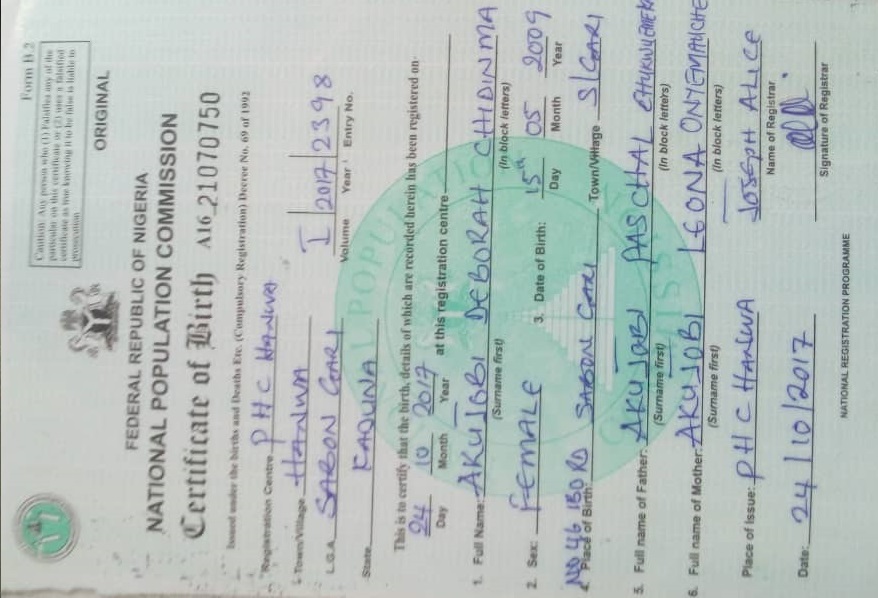 Form B.2
Caution: Any person who (1) Falsifies any of the
particular on this certificate or (2) uses a falsified
certificate as true knowing it to be false is liable to
prosecution
ORIGINAL
FEDERAL REPUBLIC OF NIGERIA
NATIONAL POPULATION COMMISSION
Certificate of Birth A16 21070750
Issued under the births and Deaths Etc. (Compulsory Registration) Decree No. 69 of 1992
Registration Centre PHC HANWA
Town/Village HANWA
L.G.A. SABON GARI I 2017 2398
State KADUNA Volume Year Entry No.
This is to certify that the birth, details of which are recorded herein has been registered on
24 10 2017 at this registration centre
Day Month Year
1. Full Name: AKUJOBI DEBORAH CHIDINMA
(Surname first) (In block letters)
2. Sex: FEMALE 3. Date of Birth: 15th 05 2009
Day Month Year
4. Place of Birth: NO 46 IBO RD SABON GARI Town/Village S/GARI
5. Full name of Father: AKUJOBI PASCHAL CHUKWUEMEKA
(Surname first) (In block letters)
6. Full name of Mother: AKUJOBI LEONA ONYEMAUCHE
(Surname first) (In block letters)
Place of Issue: PHC HANWA JOSEPH ALICE
Name of Registrar
Date: 24/10/2017
Signature of Registrar
NATIONAL REGISTRATION PROGRAMME